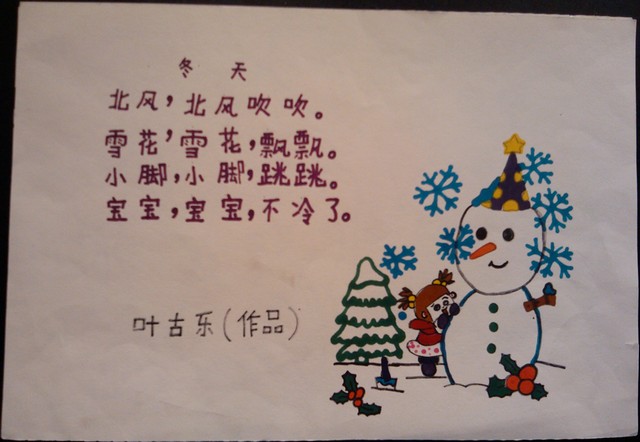 冬 天
北风,北风吹吹。
雪花,雪花,飘飘。
小脚,小脚,跳跳。
宝宝,宝宝,不冷了。
叶古乐(作品)